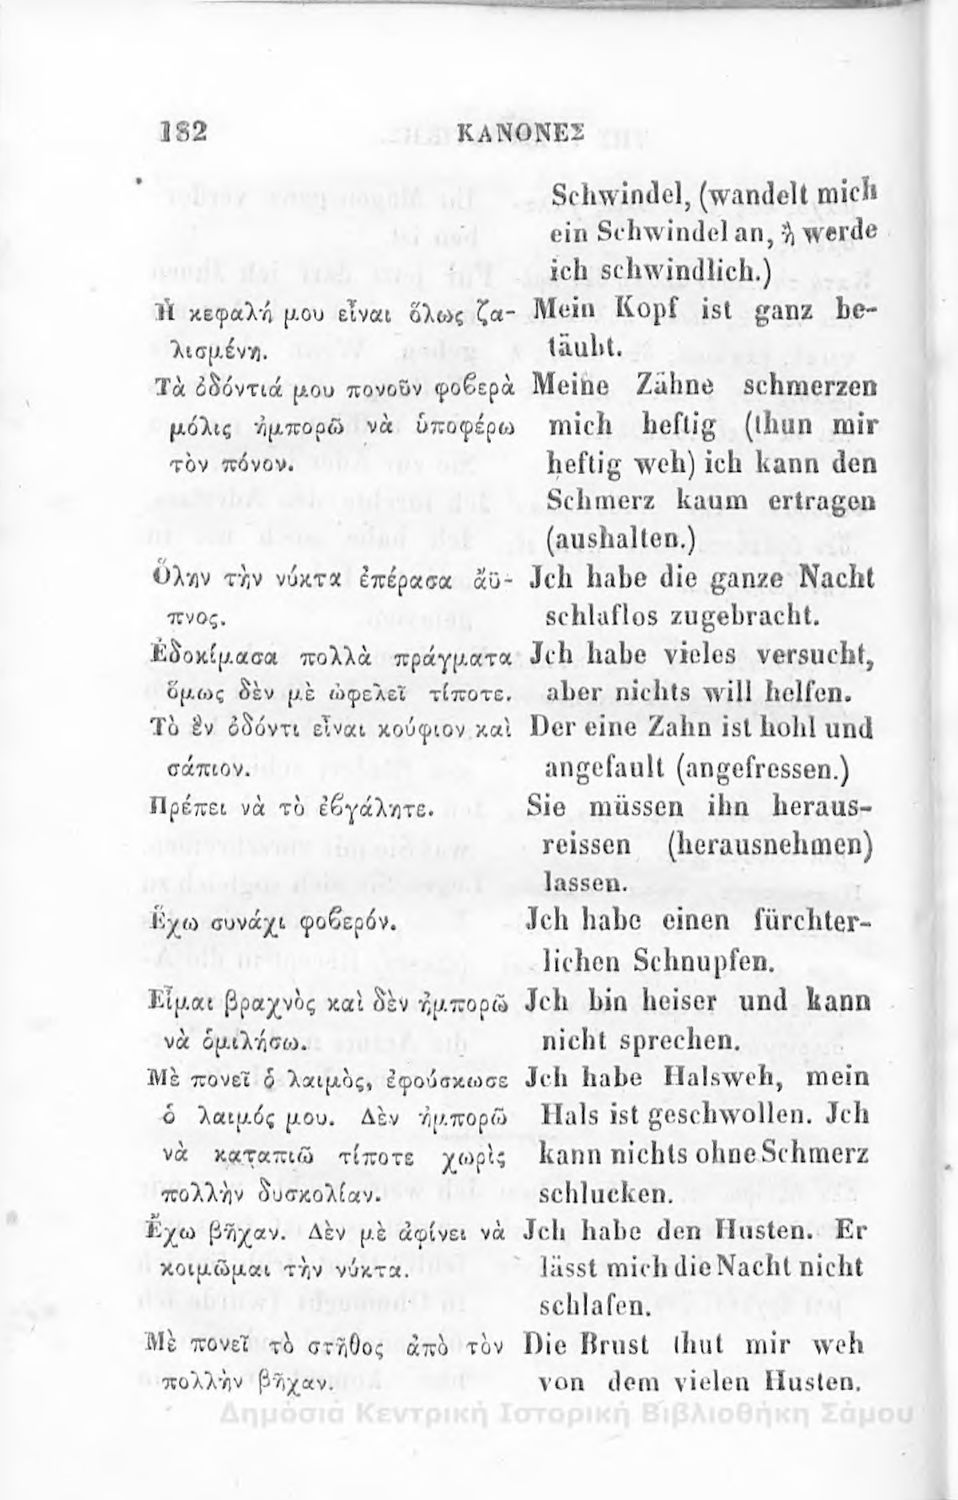 182 ΚΑΝΟΝΕΣ
Schwindel, (wandelt mich
ein Schwindel an, ἢ werde
ich schwindlich.)
Ἡ κεφαλή μου εἶναι ὅλως ζα- Mein Kopf ist ganz be-
λισμένη. täubt.
Τὰ ὀδόντιά μου πονοῦν φοβερὰ Meine Zähne schmerzen
μόλις ἠμπορῶ νὰ ὑποφέρω mich heftig (thun mir
τὸν πόνον. heftig weh) ich kann den
Schmerz kaum ertragen
(aushalten.)
Ὅλην τὴν νύκτα ἐπέρασα ἄϋ- Jch habe die ganze Nacht
πνος. schlaflos zugebracht.
Ἐδοκίμασα πολλὰ πράγματα Jch habe vieles versucht,
ὅμως δὲν μὲ ὠφελεῖ τίποτε. aber nichts will helfen.
Τὸ ἓν ὀδόντι εἶναι κούφιον καὶ Der eine Zahn ist hohl und
σάπιον. angefault (angefressen.)
Πρέπει νὰ τὸ ἐβγάλητε. Sie müssen ihn heraus-
reissen (herausnehmen)
lassen.
Ἔχω συνάχι φοβερόν. Jch habe einen fürchter-
lichen Schnupfen.
Εἶμαι βραχνὸς καὶ δὲν ἠμπορῶ Jch bin heiser und kann
νὰ ὁμιλήσω. nicht sprechen.
Μὲ πονεῖ ὁ λαιμὸς, ἐφούσκωσε Jch habe Halsweh, mein
ὁ λαιμός μου. Δὲν ἠμπορῶ Hals ist geschwollen. Jch
νὰ καταπιῶ τίποτε χωρὶς kann nichts ohne Schmerz
πολλὴν δυσκολίαν. schlucken.
Ἔχω βῆχαν. Δὲν μὲ ἀφίνει νὰ Jch habe den Husten. Er
κοιμῶμαι τὴν νύκτα. lässt mich die Nacht nicht
schlafen.
Μὲ πονεῖ τὸ στῆθος ἀπὸ τὸν Die Brust thut mir weh
πολλὴν βῆχαν. von dem vielen Husten.
Δημόσια Κεντρική Ιστορική Βιβλιοθήκη Σάμου